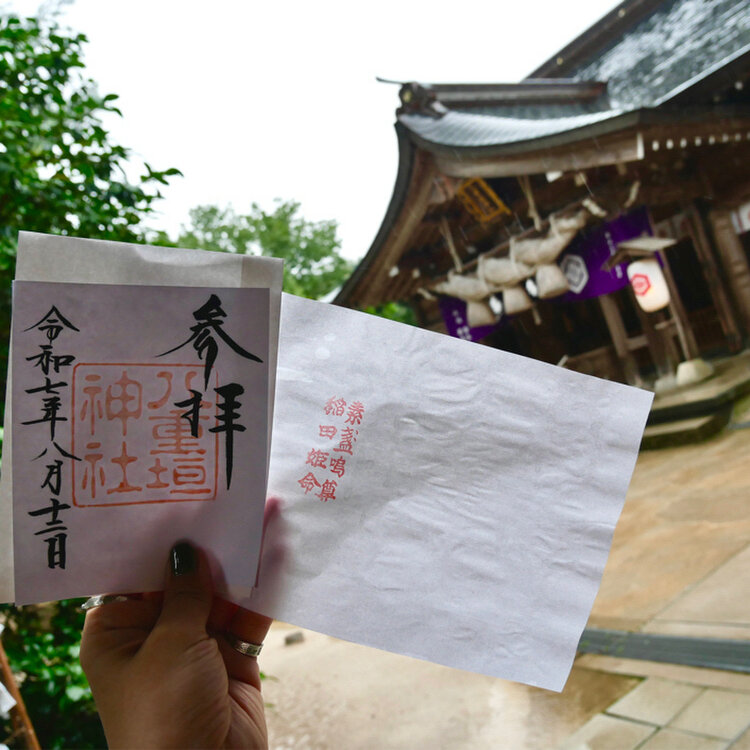 参拝
八重垣
神社
令和七年八月十二日
素盞嗚尊
稲田姫命